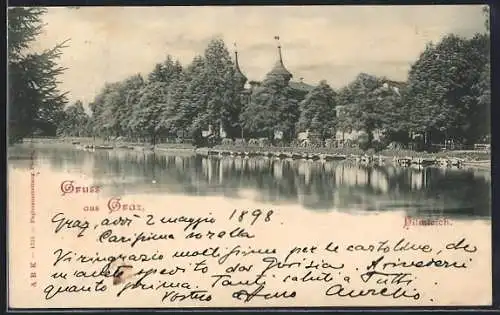 Gruss
aus Graz.
Hilmteich.
Graz, addì 2 maggio 1898
Carissima sorella
Vi ringrazio moltissimo per le cartoline, che
m'avete spedito da Gorizia. A rivederci
quanto prima. Tanti saluti a Tutti
Vostro Aurelio